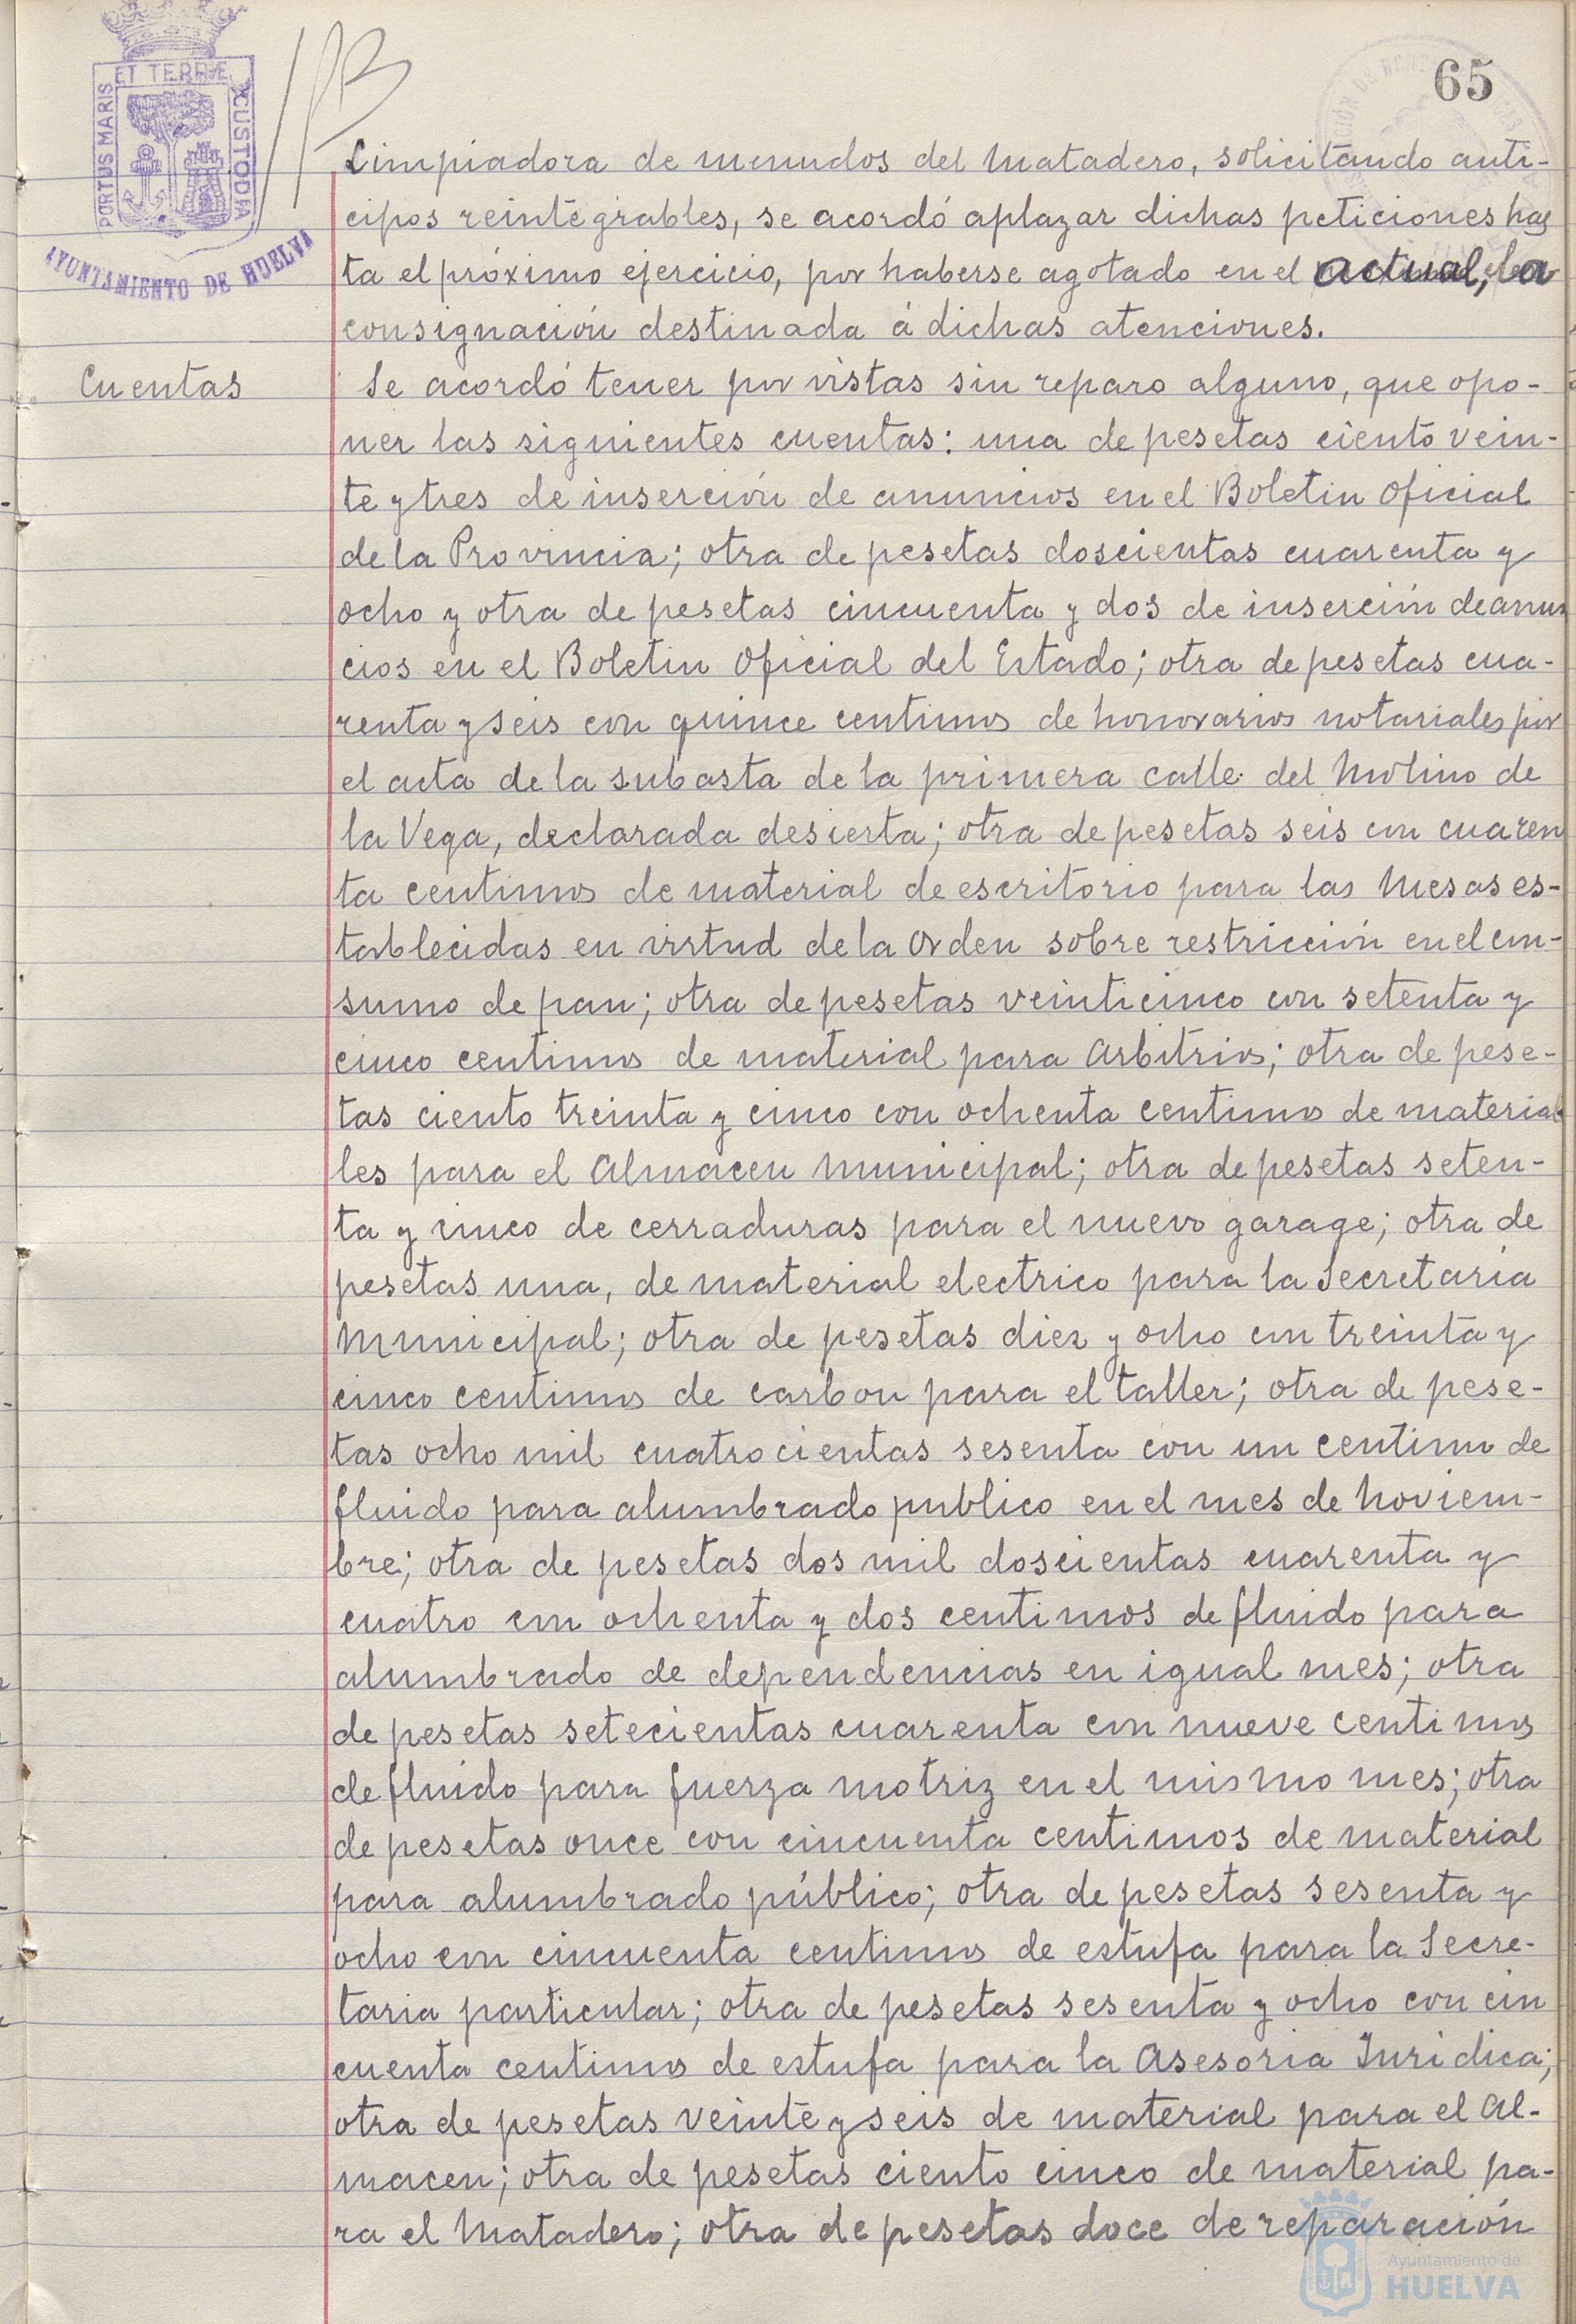 65
PORTUS MARIS ET TERRÆ CUSTODIA
AYUNTAMIENTO DE HUELVA
Limpiadora de menudos del Matadero, solicitando anti-
cipos reintegrables, se acordó aplazar dichas peticiones has
ta el próximo ejercicio, por haberse agotado en el actual, la
consignación destinada á dichas atenciones.
Cuentas
Se acordó tener por vistas sin reparo alguno, que opo-
ner las siguientes cuentas: una de pesetas ciento vein-
te y tres de inserción de anuncios en el Boletin Oficial
de la Provincia; otra de pesetas doscientas cuarenta y
ocho y otra de pesetas cincuenta y dos de inserción de anun
cios en el Boletin Oficial del Estado; otra de pesetas cua-
renta y seis con quince centimos de honorarios notariales por
el acta de la subasta de la primera calle del Molino de
la Vega, declarada desierta; otra de pesetas seis con cuaren
ta centimos de material de escritorio para las Mesas es-
tablecidas en virtud de la Orden sobre restricción en el con-
sumo de pan; otra de pesetas veinticinco con setenta y
cinco centimos de material para Arbitrios; otra de pese-
tas ciento treinta y cinco con ochenta centimos de materia
les para el Almacen Municipal; otra de pesetas seten-
ta y cinco de cerraduras para el nuevo garage; otra de
pesetas una, de material electrico para la Secretaria
Municipal; otra de pesetas diez y ocho con treinta y
cinco centimos de carbon para el taller; otra de pese-
tas ocho mil cuatrocientas sesenta con un centimo de
fluido para alumbrado publico en el mes de Noviem-
bre; otra de pesetas dos mil doscientas cuarenta y
cuatro con ochenta y dos centimos de fluido para
alumbrado de dependencias en igual mes; otra
de pesetas setecientas cuarenta con nueve centimos
de fluido para fuerza motriz en el mismo mes; otra
de pesetas once con cincuenta centimos de material
para alumbrado público; otra de pesetas sesenta y
ocho con cincuenta centimos de estufa para la Secre-
taria particular; otra de pesetas sesenta y ocho con cin
cuenta centimos de estufa para la Asesoria Juridica;
otra de pesetas veinte y seis de material para el Al-
macen; otra de pesetas ciento cinco de material pa-
ra el Matadero; otra de pesetas doce de reparación
Ayuntamiento de
HUELVA